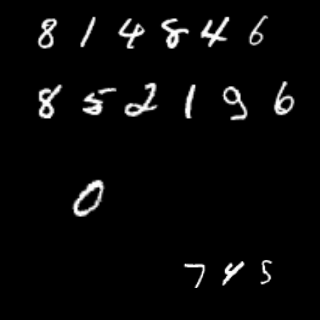 814846
852196
0
745